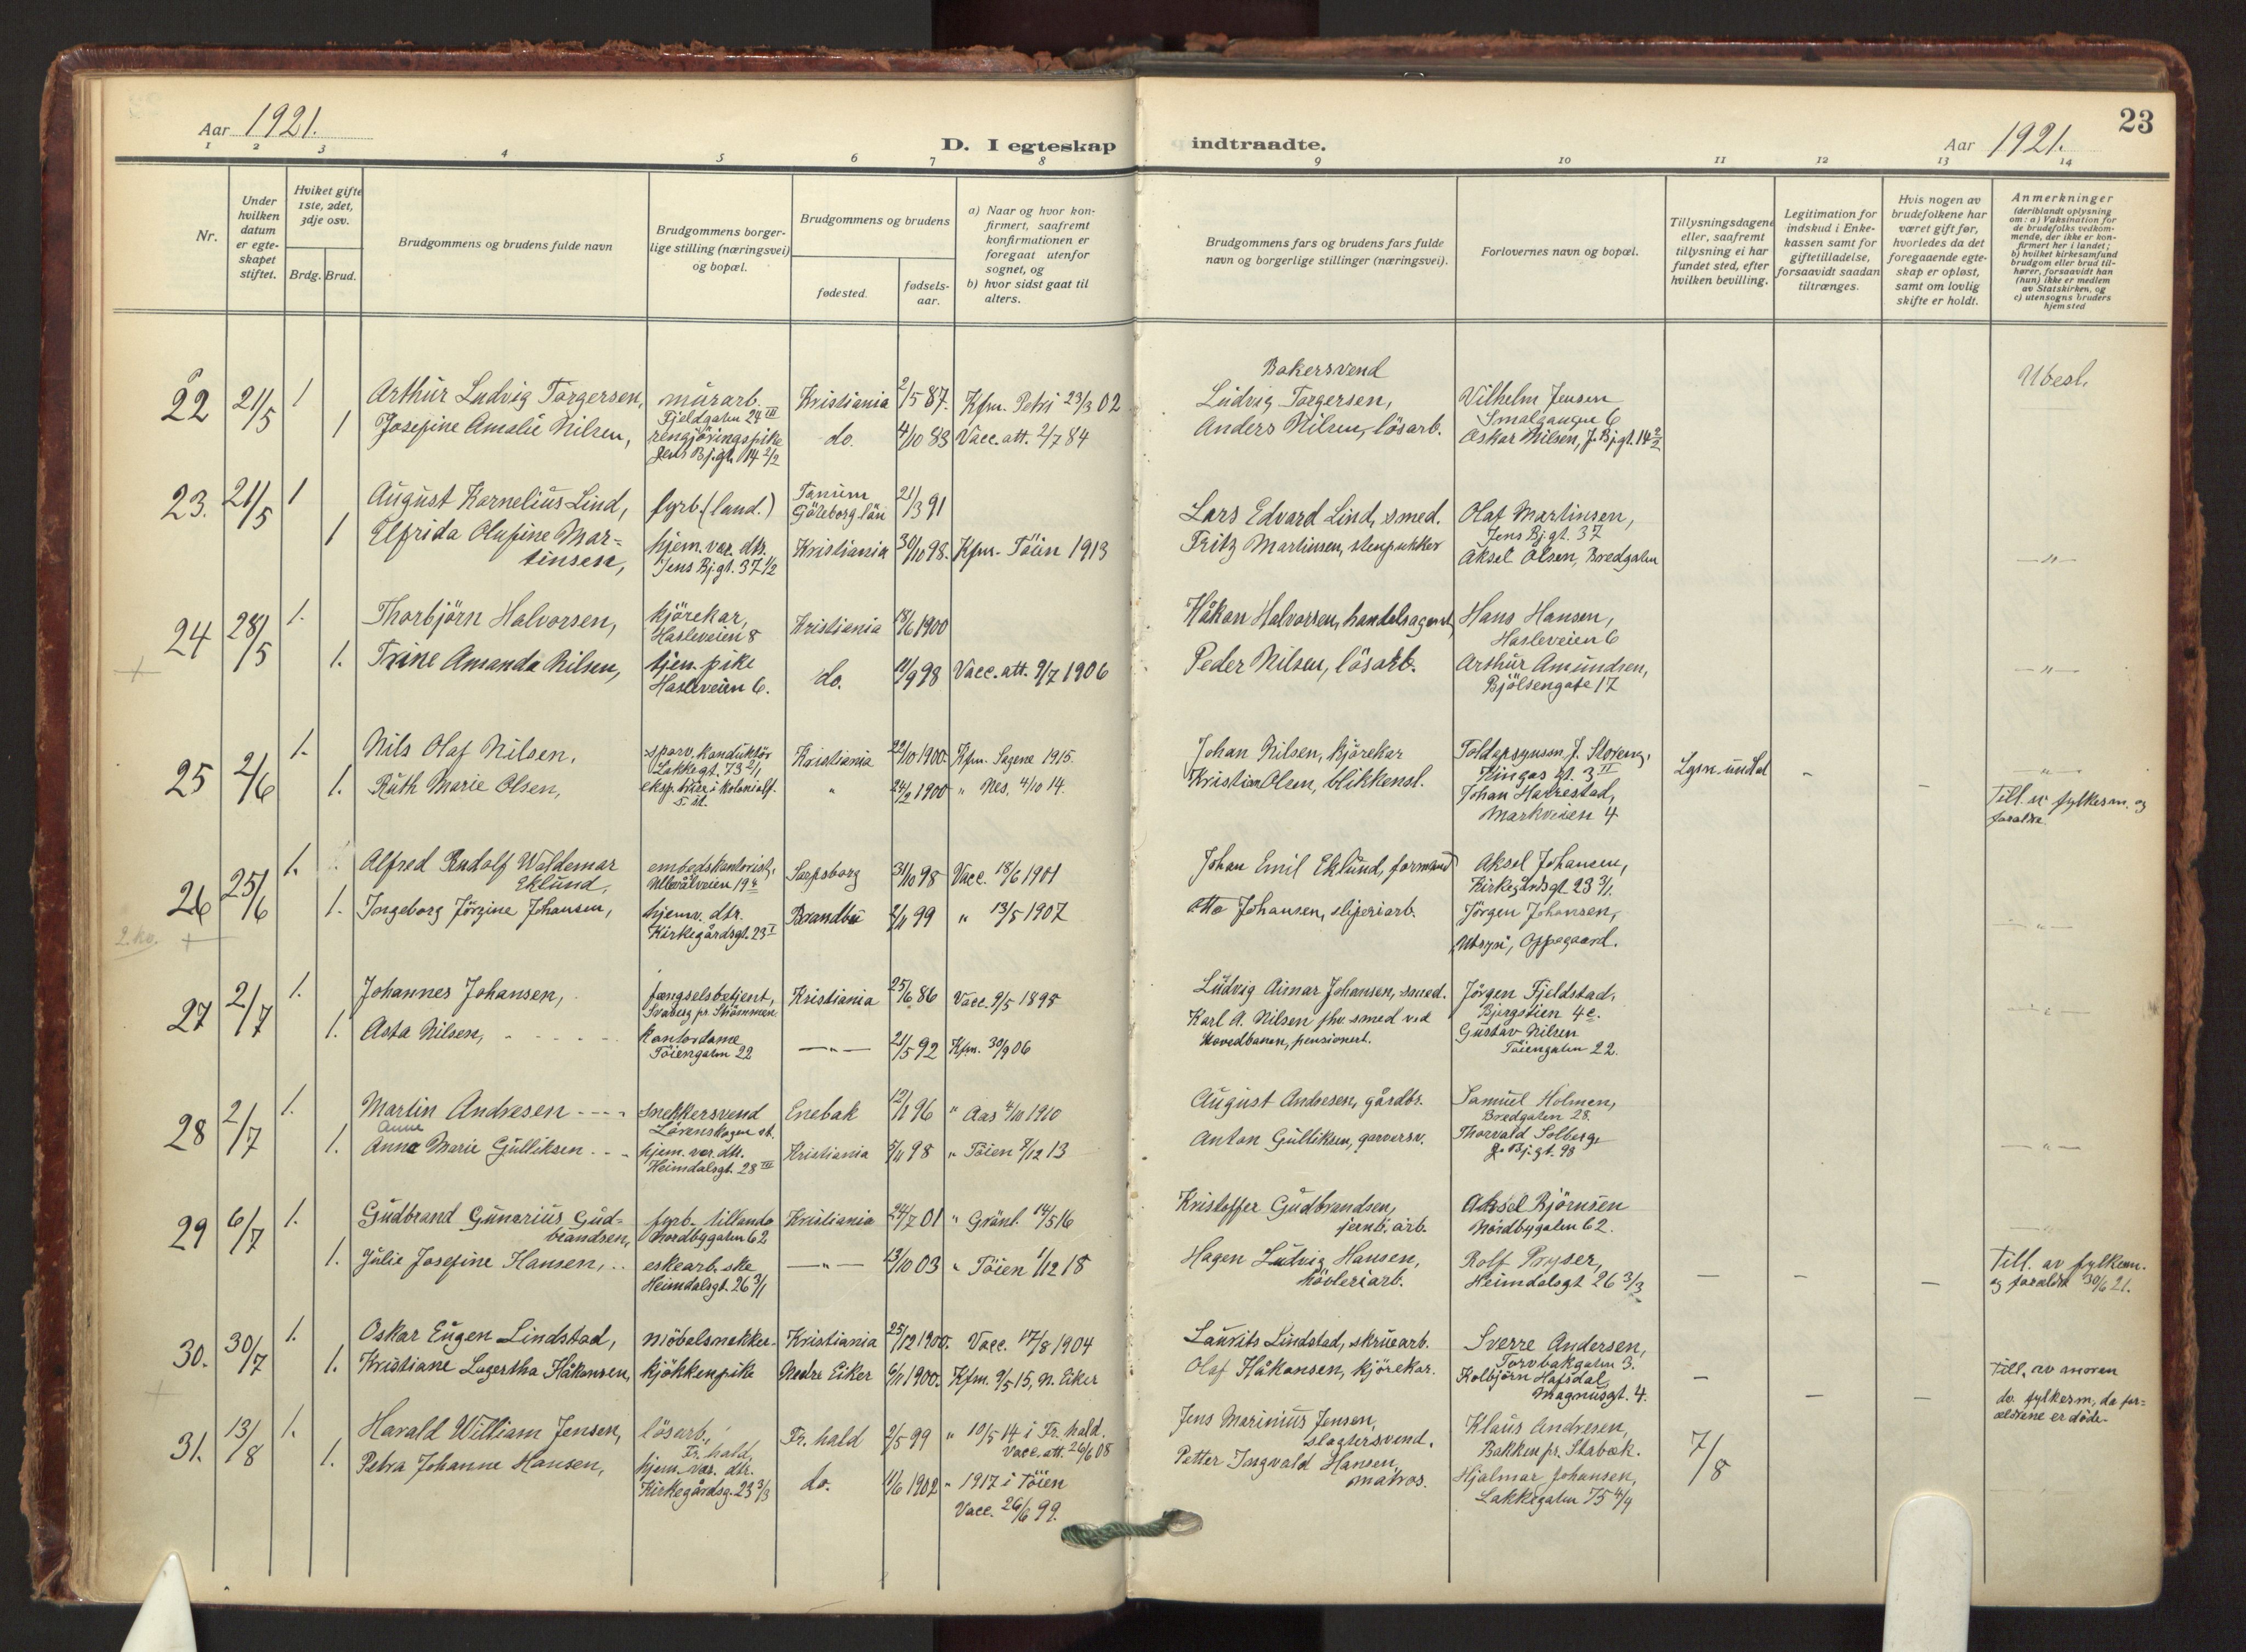 Aar 1921.
D. I egteskap indtraadte.
Aar 1921.
23
1 2 3 4 5 6 7 8 9 10 11 12 13 14
Nr.
Under hvilken datum er egte-skapet stiftet.
Hviket gifte 1ste, 2det, 3dje osv.
Brdg. Brud.
Brudgommens og brudens fulde navn
Brudgommens borger-lige stilling (næringsvei) og bopæl.
Brudgommens og brudens
fødested.
fødsels-aar.
a) Naar og hvor kon-firmert, saafremt konfirmationen er foregaat utenfor sognet, og
b) hvor sidst gaat til alters.
Brudgommens fars og brudens fars fulde navn og borgerlige stillinger (næringsvei).
Forlovernes navn og bopæl.
Tillysningsdagene eller, saafremt tillysning ei har fundet sted, efter hvilken bevilling.
Legitimation for indskud i Enke-kassen samt for giftetilladelse, forsaavidt saadan tiltrænges.
Hvis nogen av brudefolkene har været gift før, hvorledes da det foregaaende egte-skap er opløst, samt om lovlig skifte er holdt.
Anmerkninger
(deriblandt oplysning om: a) Vaksination for de brudefolks vedkom-mende, der ikke er kon-firmert her i landet; b) hvilket kirkesamfund brudgom eller brud til-hører, forsaavidt han (hun) ikke er medlem av Statskirken, og c) utensogns bruders hjemsted
22 21/5 1 Arthur Ludvig Torgersen, murarb. Fjeldgaten 24 III Kristiania 2/5 87. Kfm. Petri 23/3 02 Bokersvend Ludvig Torgersen, Vilhelm Jensen Smalgangen 6 Ubesl.
1 Josefine Amalie Nilsen, rengjöringspike Jens Bj.gt. 14 2/2 do. 4/10 83 Vacc. att. 2/7 84 Anders Nilsen, lösarb. Oskar Nilsen, J. Bj.gt. 14 2/2
23. 21/5 1 August Kornelius Lind, fyrb. (land.) Tanum Göteborg län 21/3 91 Lars Edvard Lind, smed. Olaf Martinsen, Jens Bj.gt. 37
1 Elfrida Olafine Mar=tinsen, hjem. vær. dtr. Jens Bj.gt. 37 1/2 Kristiania 30/10 98. Kfm. Töien 1913 Fritz Martinsen, stenpukker Aksel Olsen, Bredgaten —"—
24 28/5 1. Thorbjörn Halvorsen, kjörekar, Hasleveien 8 Kristiania 18/6 1900 Håkon Halvorsen, handelsagent, Hans Hansen, Hasleveien 6
1. Trine Amanda Nilsen, tjen. pike Hasleveien 6. do. 11/9 98 Vacc. att. 9/7 1906 Peder Nilsen, lösarb. Arthur Amundsen, Bjölsengate 17 —"—
25 2/6 1. Nils Olaf Nilsen, sporv. konduktör Lakkegt. 73 2/1 Kristiania 22/10 1900. Kfm. Sagene 1915. Johan Nilsen, kjörekar Toldopsynsm. J. Storeng, Kingos gt. 3 II —"—
1. Ruth Marie Olsen, " 24/2 1900 " Nes, 4/10 14. Kristian Olsen, blikkensl. Johan Harrestad, Markveien 4 - - Till. av fylkesm. og foraldre
26 25/6 1. Alfred Rudolf Waldemar Eklund, embedskontorist, Ullevålveien 19 Sarpsborg 31/10 98 Vacc. 18/6 1901 Johan Emil Eklund, formand Aksel Johansen, Kirkegårdsgt. 23 3/1
2. ko.
1. Ingeborg Jörgine Johansen, hjemv. dtr. Kirkegårdsgt. 23 I Brandbu 2/11 99 " 13/5 1907 Otto Johansen, sliperiarb. Jörgen Johansen, Utsyn, Oppegaard. —"—
27 2/7 1. Johannes Johansen, fængselsbetjent, Kristiania 25/6 86 Vacc. 9/5 1895 Ludvig Aimar Johansen, smed. Jörgen Fjeldstad, 4c.
1. Asta Nilsen, kontordame Töiengaten 22 —"— 21/5 92 Kfm. 30/9 06 Karl A. Nilsen fhv. smed ved Hovedbanen, pensionert. Gustav Nilsen Töiengaten 22. —"—
28 2/7 1. Martin Andresen snekkersvend Lörenskogen st. Enebak 12/11 96 " Aas 4/10 1910 August Andresen, gårdbr. Samuel Holmen, Bredgaten 28.
1. Anna Marie Gulliksen Anne hjem. vær. dtr. Heimdalsgt. 28 III Kristiania 5/11 98 " Töien 7/12 13 Anton Gulliksen, garversv. Thorvald Solberg J. Bj.gt. 98 —"—
29 6/7 1. Gudbrand Gunerius Gud=brandsen, fyrb. tillands Nordbygaten 62 Kristiania 24/7 01 " Grönl. 14/5 16 Kristoffer Gudbrandsen, jernb. arb. Aksel Björnsen Nordbygaten 62. —"—
1. Julie Josefine Hansen, eskearb.ske Heimdalsgt. 26 3/1 —"— 13/10 03 " Töien 1/12 18 Hagen Ludvig Hansen, hövleriarb. Rolf Pryser, Heimdalsgt 26 3/3 — — — Till. av fylkesm. og foraldre 30/6 21.
30. 30/7 1. Oskar Eugen Lindstad, möbelsnekker. Kristiania 25/12 1900. Vacc. 17/8 1904 Laurits Lindstad, skruearb. Sverre Andersen, Torvbakgaten 3.
1. Kristiane Lagertha Håkonsen, kjökkenpike Nedre Eiker 6/11 1900. Kfm. 9/5 15, N. Eiker Olaf Håkansen, kjörekar. Kolbjörn Hafsdal, Magnusgt. 4. — — — Till. av moren do. fylkesm, da for=ældrene er döde.
31. 13/8 1. Harald William Jensen, lösarb., Fr. hald, Fr. hald 2/5 99 " 10/5 14 i Fr. hald. Vacc. att. 26/6 08 Jens Marinius Jensen, slagtersvend. Klaus Andresen, Bakken pr. Stabæk. 7/8
1. Petra Johanne Hansen, hjem. vær. dtr. Kirkegårdsg. 23 3/3 do. 11/6 1902 " 1917 i Töien Vacc. 26/6 99. Petter Ingvald Hansen, matros. Hjalmar Johansen, Lakkegaten 75 4/4